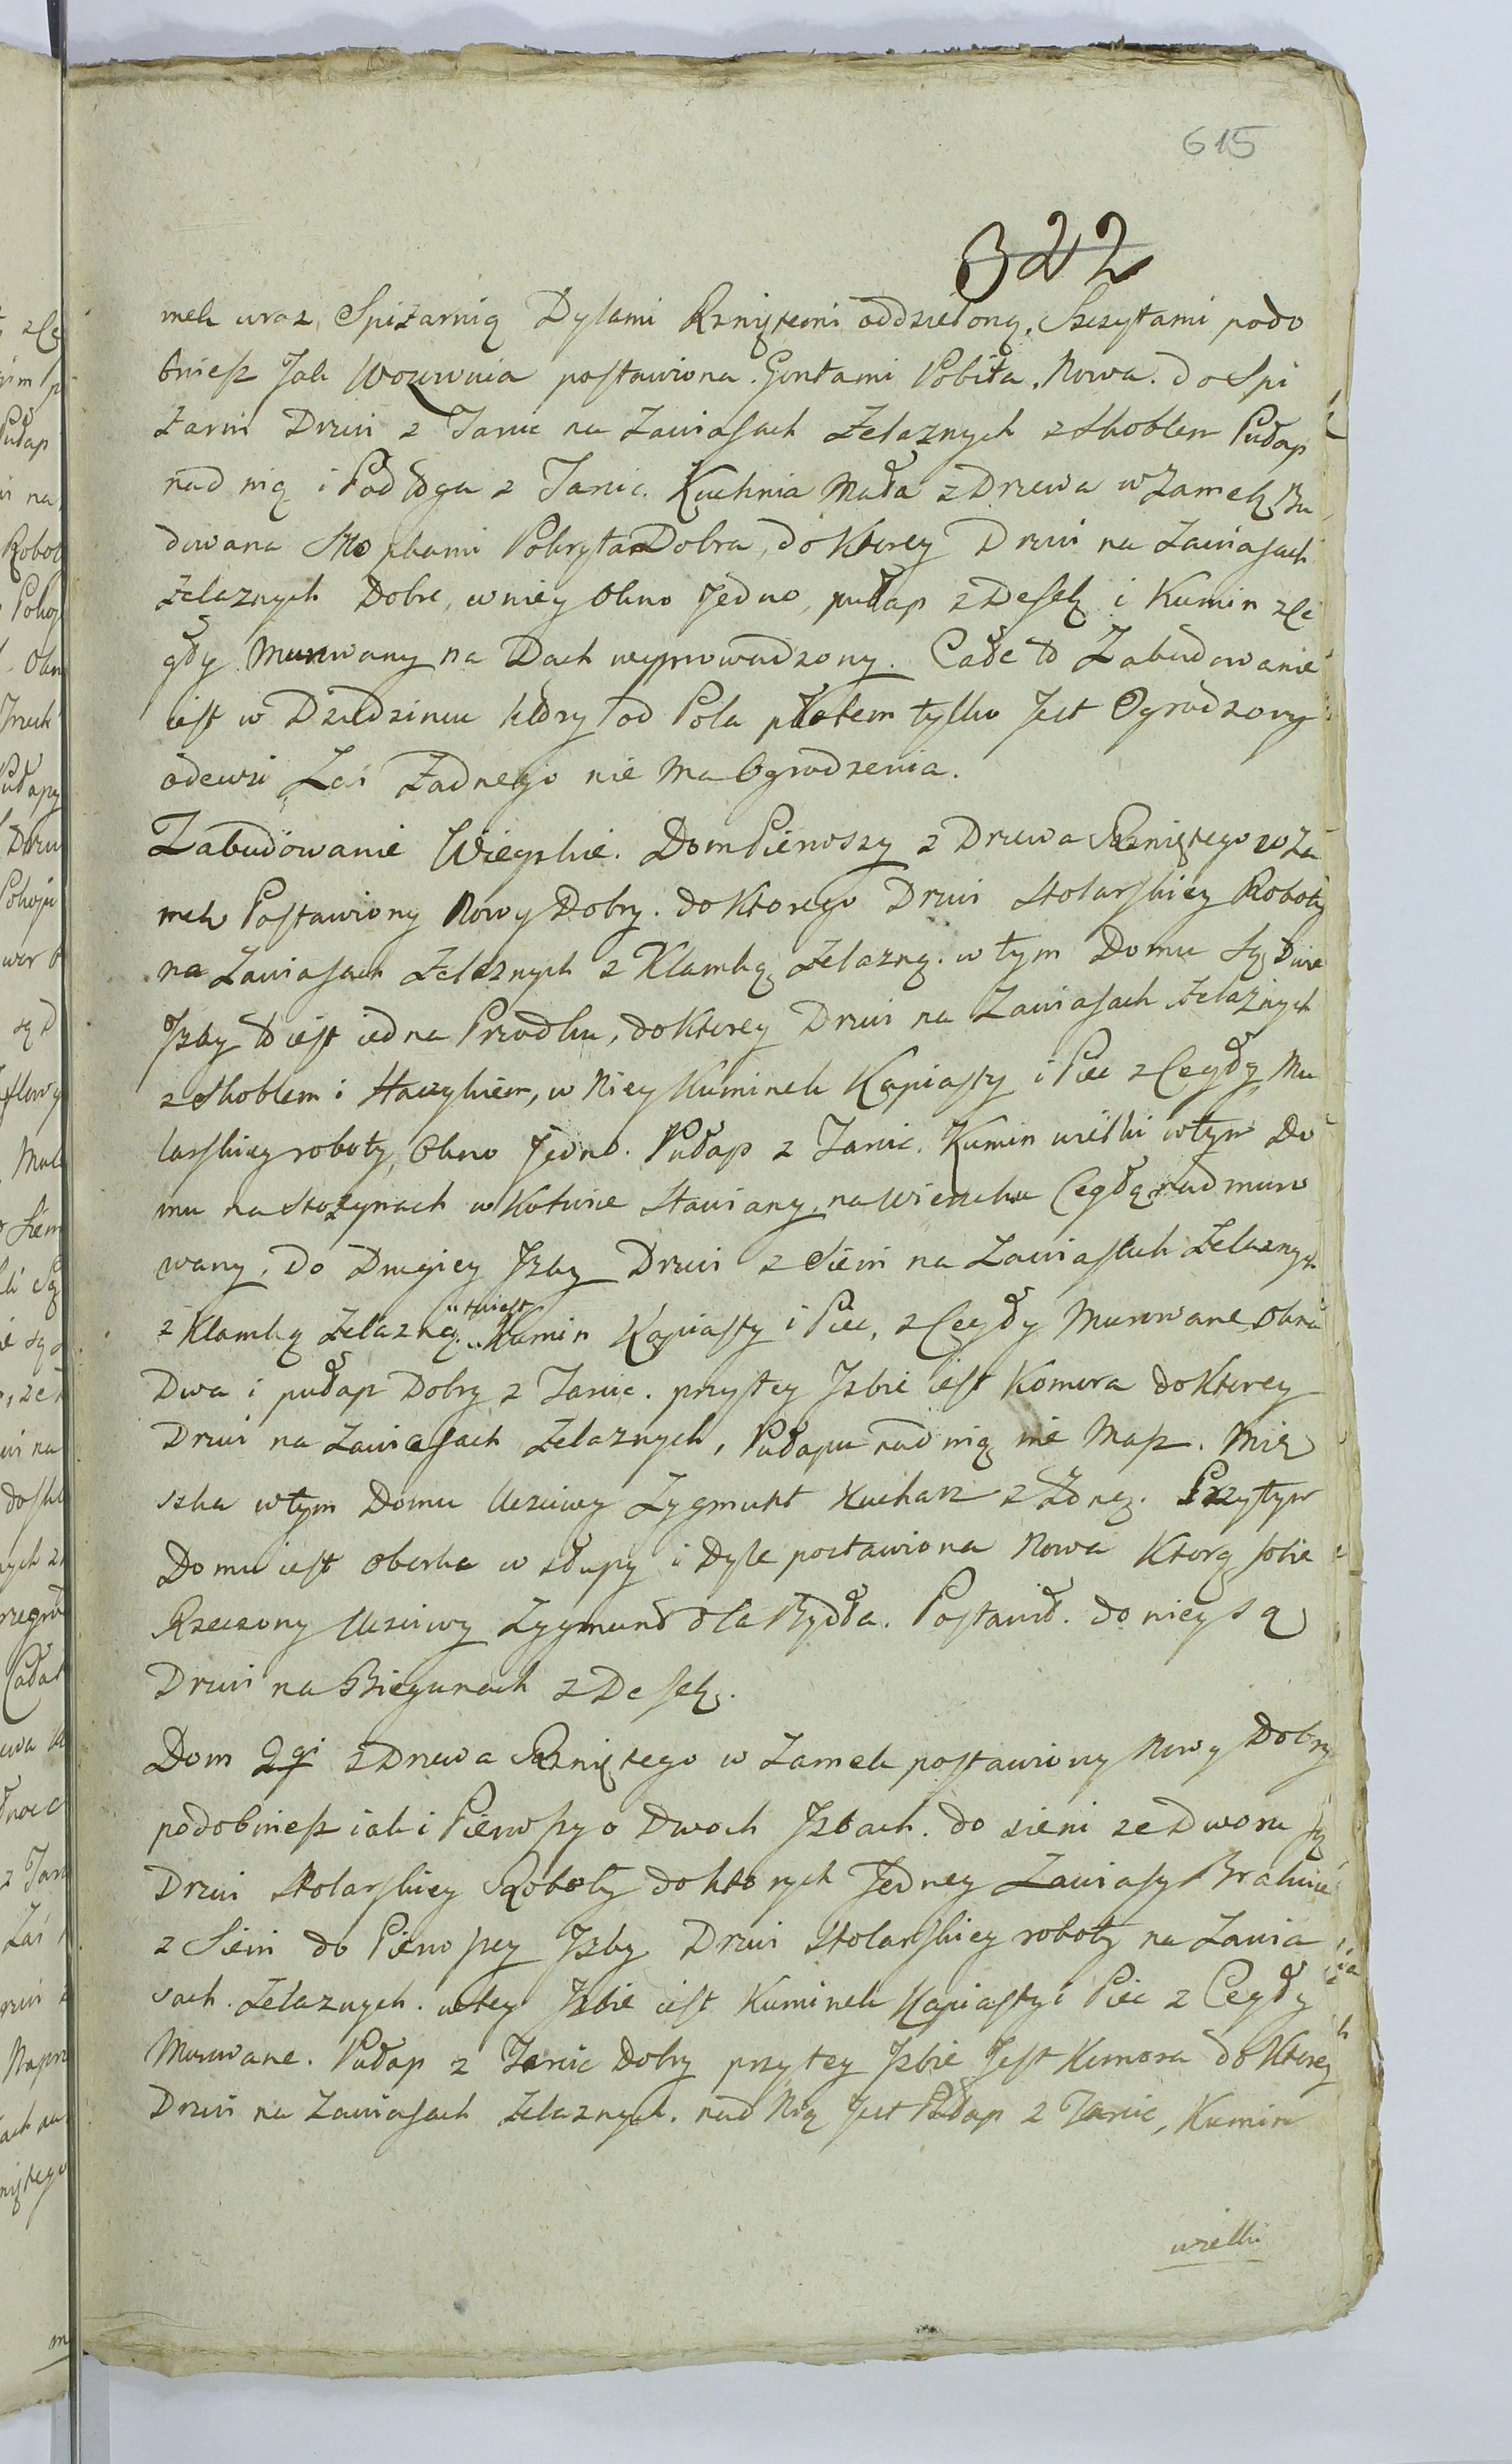 615
322
mek wraz Spiżarnią Dylami Rzniętemi oddzieloną. Szczytami podo
bniesz Jak Wozownia postawiona. Gontami Pobita. Nowa. do Spi
żarni Drzwi z Tarcic na Zawiasach Żelaznych z Skoblem Pułap
nad nią i Podłoga z Tarcic. Kuchnia Mała z Drzewa w Zamek Bu
dowana Sto pkami Pokryta Dobra, do Ktorey Drzwi na Zawiasach
żelaznych Dobre, w niey Okno Jedno, pułap z Desek i Kumin z Ce
gły Murowany na Dach wyprowadzony. Całe to Zabudowanie
iest w Dziedzincu który od Pola płotem tylko Jest Ogrodzony
odewsi Zaś Żadnego nie Ma Ogrodzenia.
Zabudowanie Wieyskie. Dom Pierwszy z Drzewa Rzniętego w Za
mek Postawiony Nowy Dobry. do Ktorego Drzwi Stolarskiey Roboty
na Zawiasach Żelaznych z Klamką Żelazną. w tym Domu Są Dwie
Jzby to iest iedna Przodku, do Ktorey Drzwi na Zawiasach Żelaznych
z Skoblem i Haczykiem, w Niey Kuminek Kapiasty i Piec z Cegły Mu
larskiey roboty, Okno Jedno. Pułap z Tarcic. Kumin wielki w tym Do
mu na Stożynach w Kotwice Stawiany, na Wierzchu Cegłą nadmuro
wany. Do Drugiey Jzby Drzwi z Sieni na Zawiasach Żelaznych
z Klamką Żelazną. tu iest Kumin Kapiasty i Piec, z Cegły Murowane Okna
Dwa i pułap Dobry z Tarcic. przy tey Jzbie iest Komora do Ktorey
Drzwi na Zawiasach Żelaznych, Pułapu nad nią nie Masz. Mie
szka w tym Domu Uczciwy Zygmunt Kucharz z Żoną. Przy tym
Domu iest oborka w słupy i Dyle postawiona Nowa Ktorą sobie
Rzeczony Uczciwy Zygmund dla Bydła. Postawił. do niey są
Drzwi na Biegunach z Desek.
Dom 2gi z Drzewa Rzniętego w Zamek postawiony Nowy Dobry
podobniesz iak i Pierwszy o Dwoch Jzbach. do sieni ze Dworu są
Drzwi Stolarskiey Roboty do ktorych Jedney Zawiasy Brakuie
z Sieni do Pierwszey Jzby Drzwi Stolarskiey roboty na Zawia
sach. Żelaznych. w tey Jzbie iest Kuminek Kapiasty i Piec z Cegły
Murowane. Pułap z Tarcic Dobry przy tey Jzbie Jest Komora do Ktorey
Drzwi na Zawiasach Żelaznych. nad Nią Jest Pułap z Tarcic, Kumin
wielki